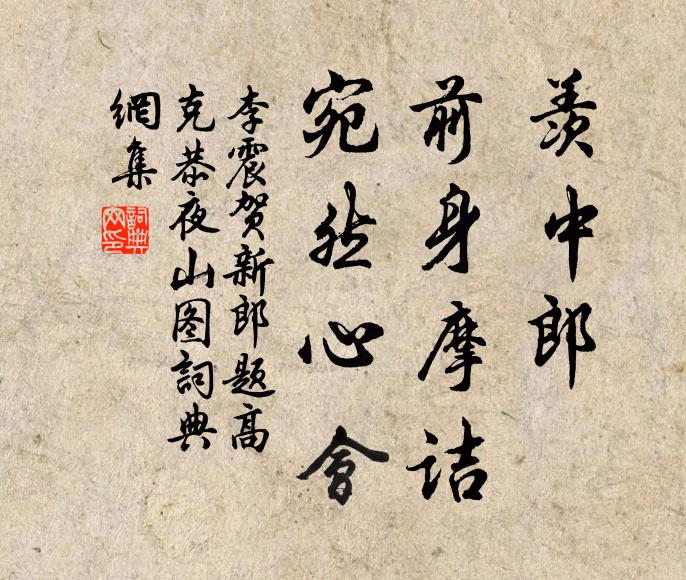 羨中郎
前身摩诘
宛然心會
李震贺新郎題高
克恭夜山图詞典
網集
詞典
网印